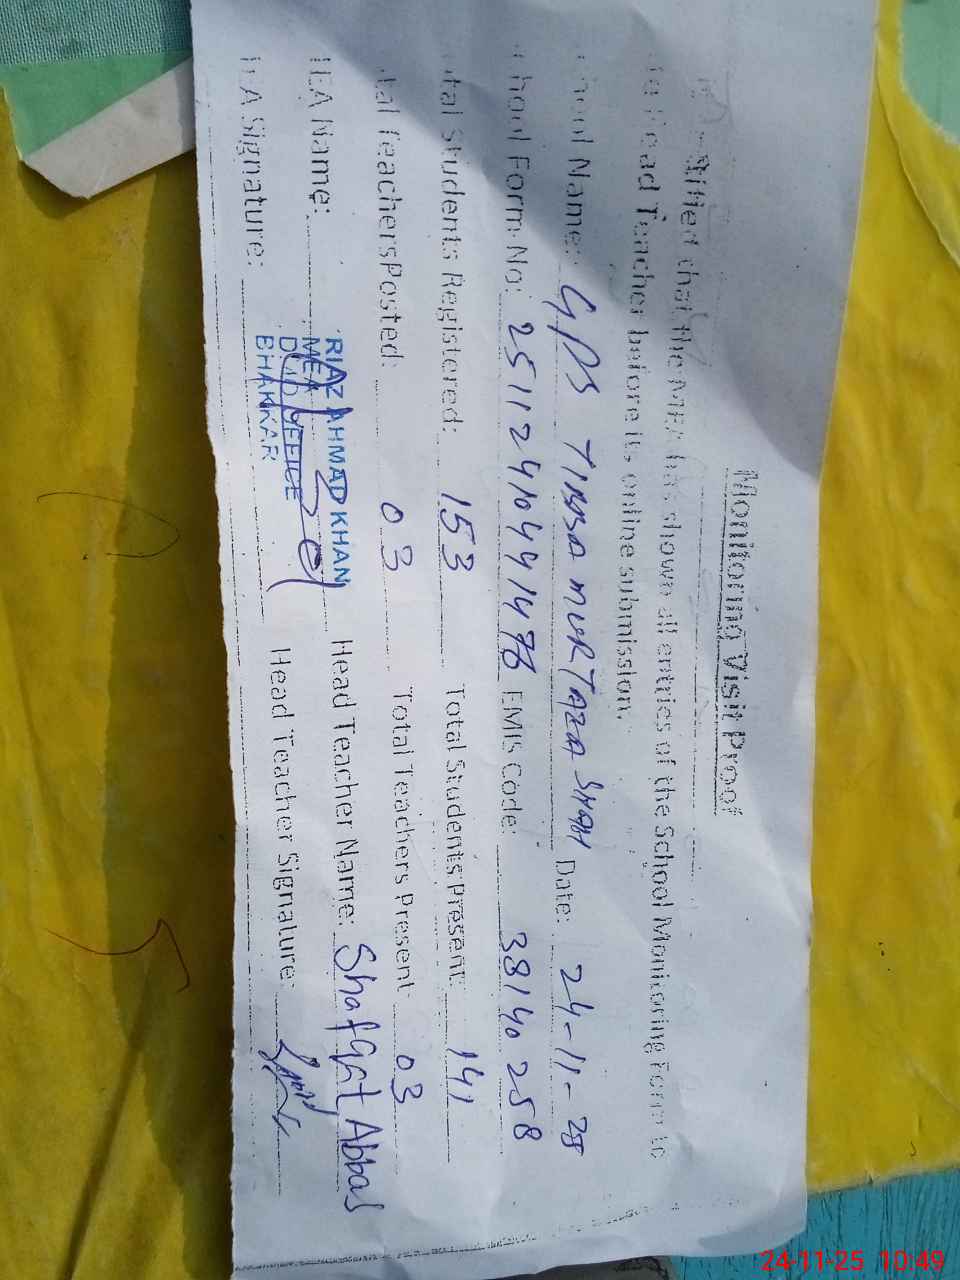 Monitoring Visit Proof
that the MEA has shown all entries of the School Monitoring Form to
Head Teacher before its online submission.
Name: GPS TIBBA MURTAZA SHAH Date: 24-11-25
Form No: EMIS Code: 38140258
Students Registered: 153 Total Students Present: 141
Teachers Posted: 03 Total Teachers Present: 03
Name: RIAZ AHMAD KHAN Head Teacher Name: Shafqat Abbas
MEA
OFFICE
BHAKKAR
Signature: Head Teacher Signature:
24-11-25 10:49